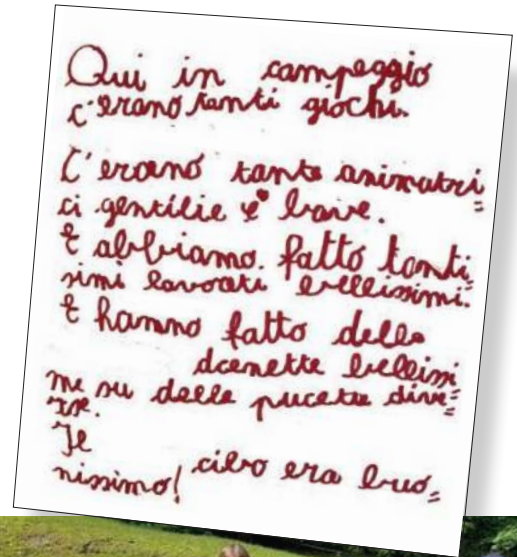 Qui in campeggio
c'erano tanti giochi.
C'erano tante animatri=
ci gentilie e brave.
E abbiamo fatto tanti
simi lavorati bellissimi.
E hanno fatto delle
scenette bellissi
me su delle dive=
rse.
Il
cibo era buo=
nissimo!